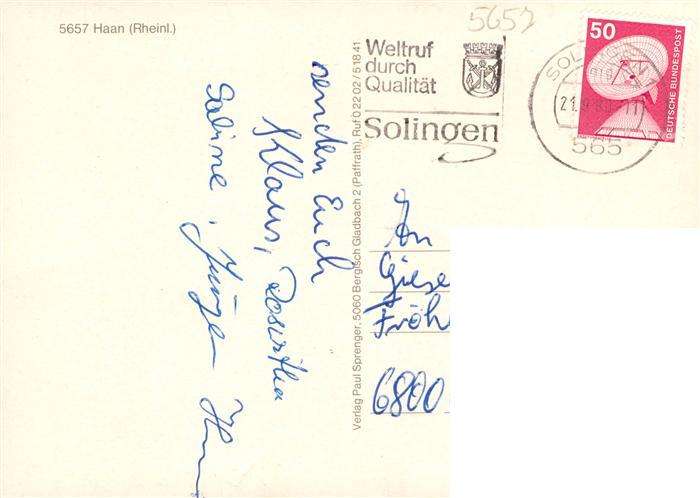 5657 Haan (Rheinl.)
5657
Weltruf
durch
Qualität
Solingen
50
DEUTSCHE BUNDESPOST
SOL
21.9.80
565
Verlag Paul Sprenger, 5060 Bergisch Gladbach 2 (Paffrath), Ruf 0 22 02 / 5 18 41
senden Euch
Klaus, Roswitha
Sabine, Jürgen
An
Giese
Fröh
6800